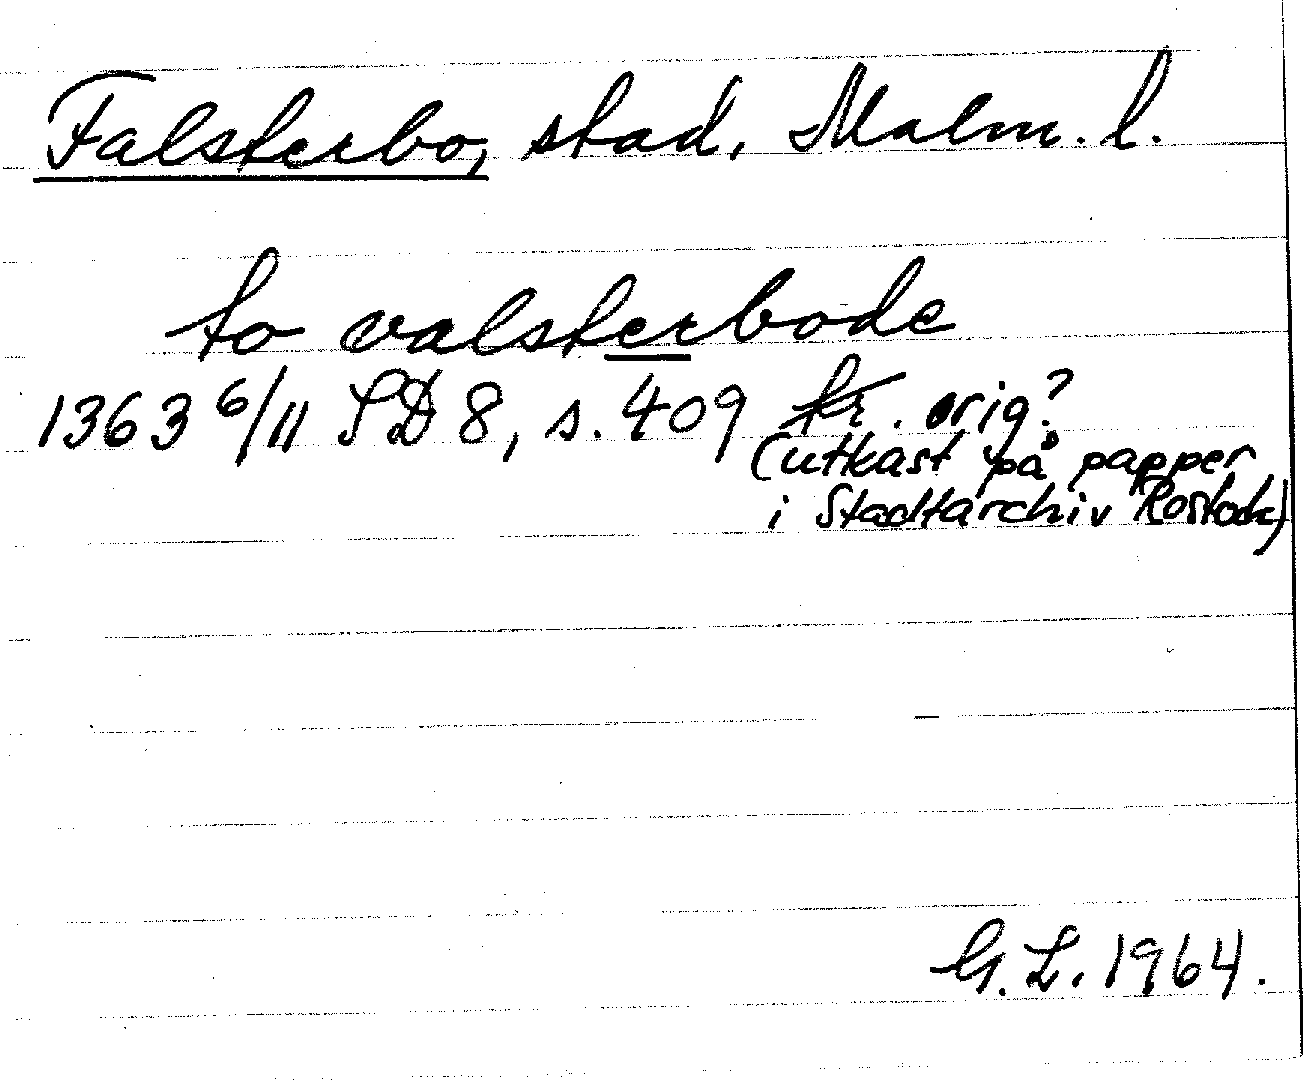 Falsterbo, stad, Malm. l.
to valsterbode
1363 6/11 SD 8, s. 409 kr. orig?
(utkast på papper
i Stadtarchiv Rostock)
G. L. 1964.